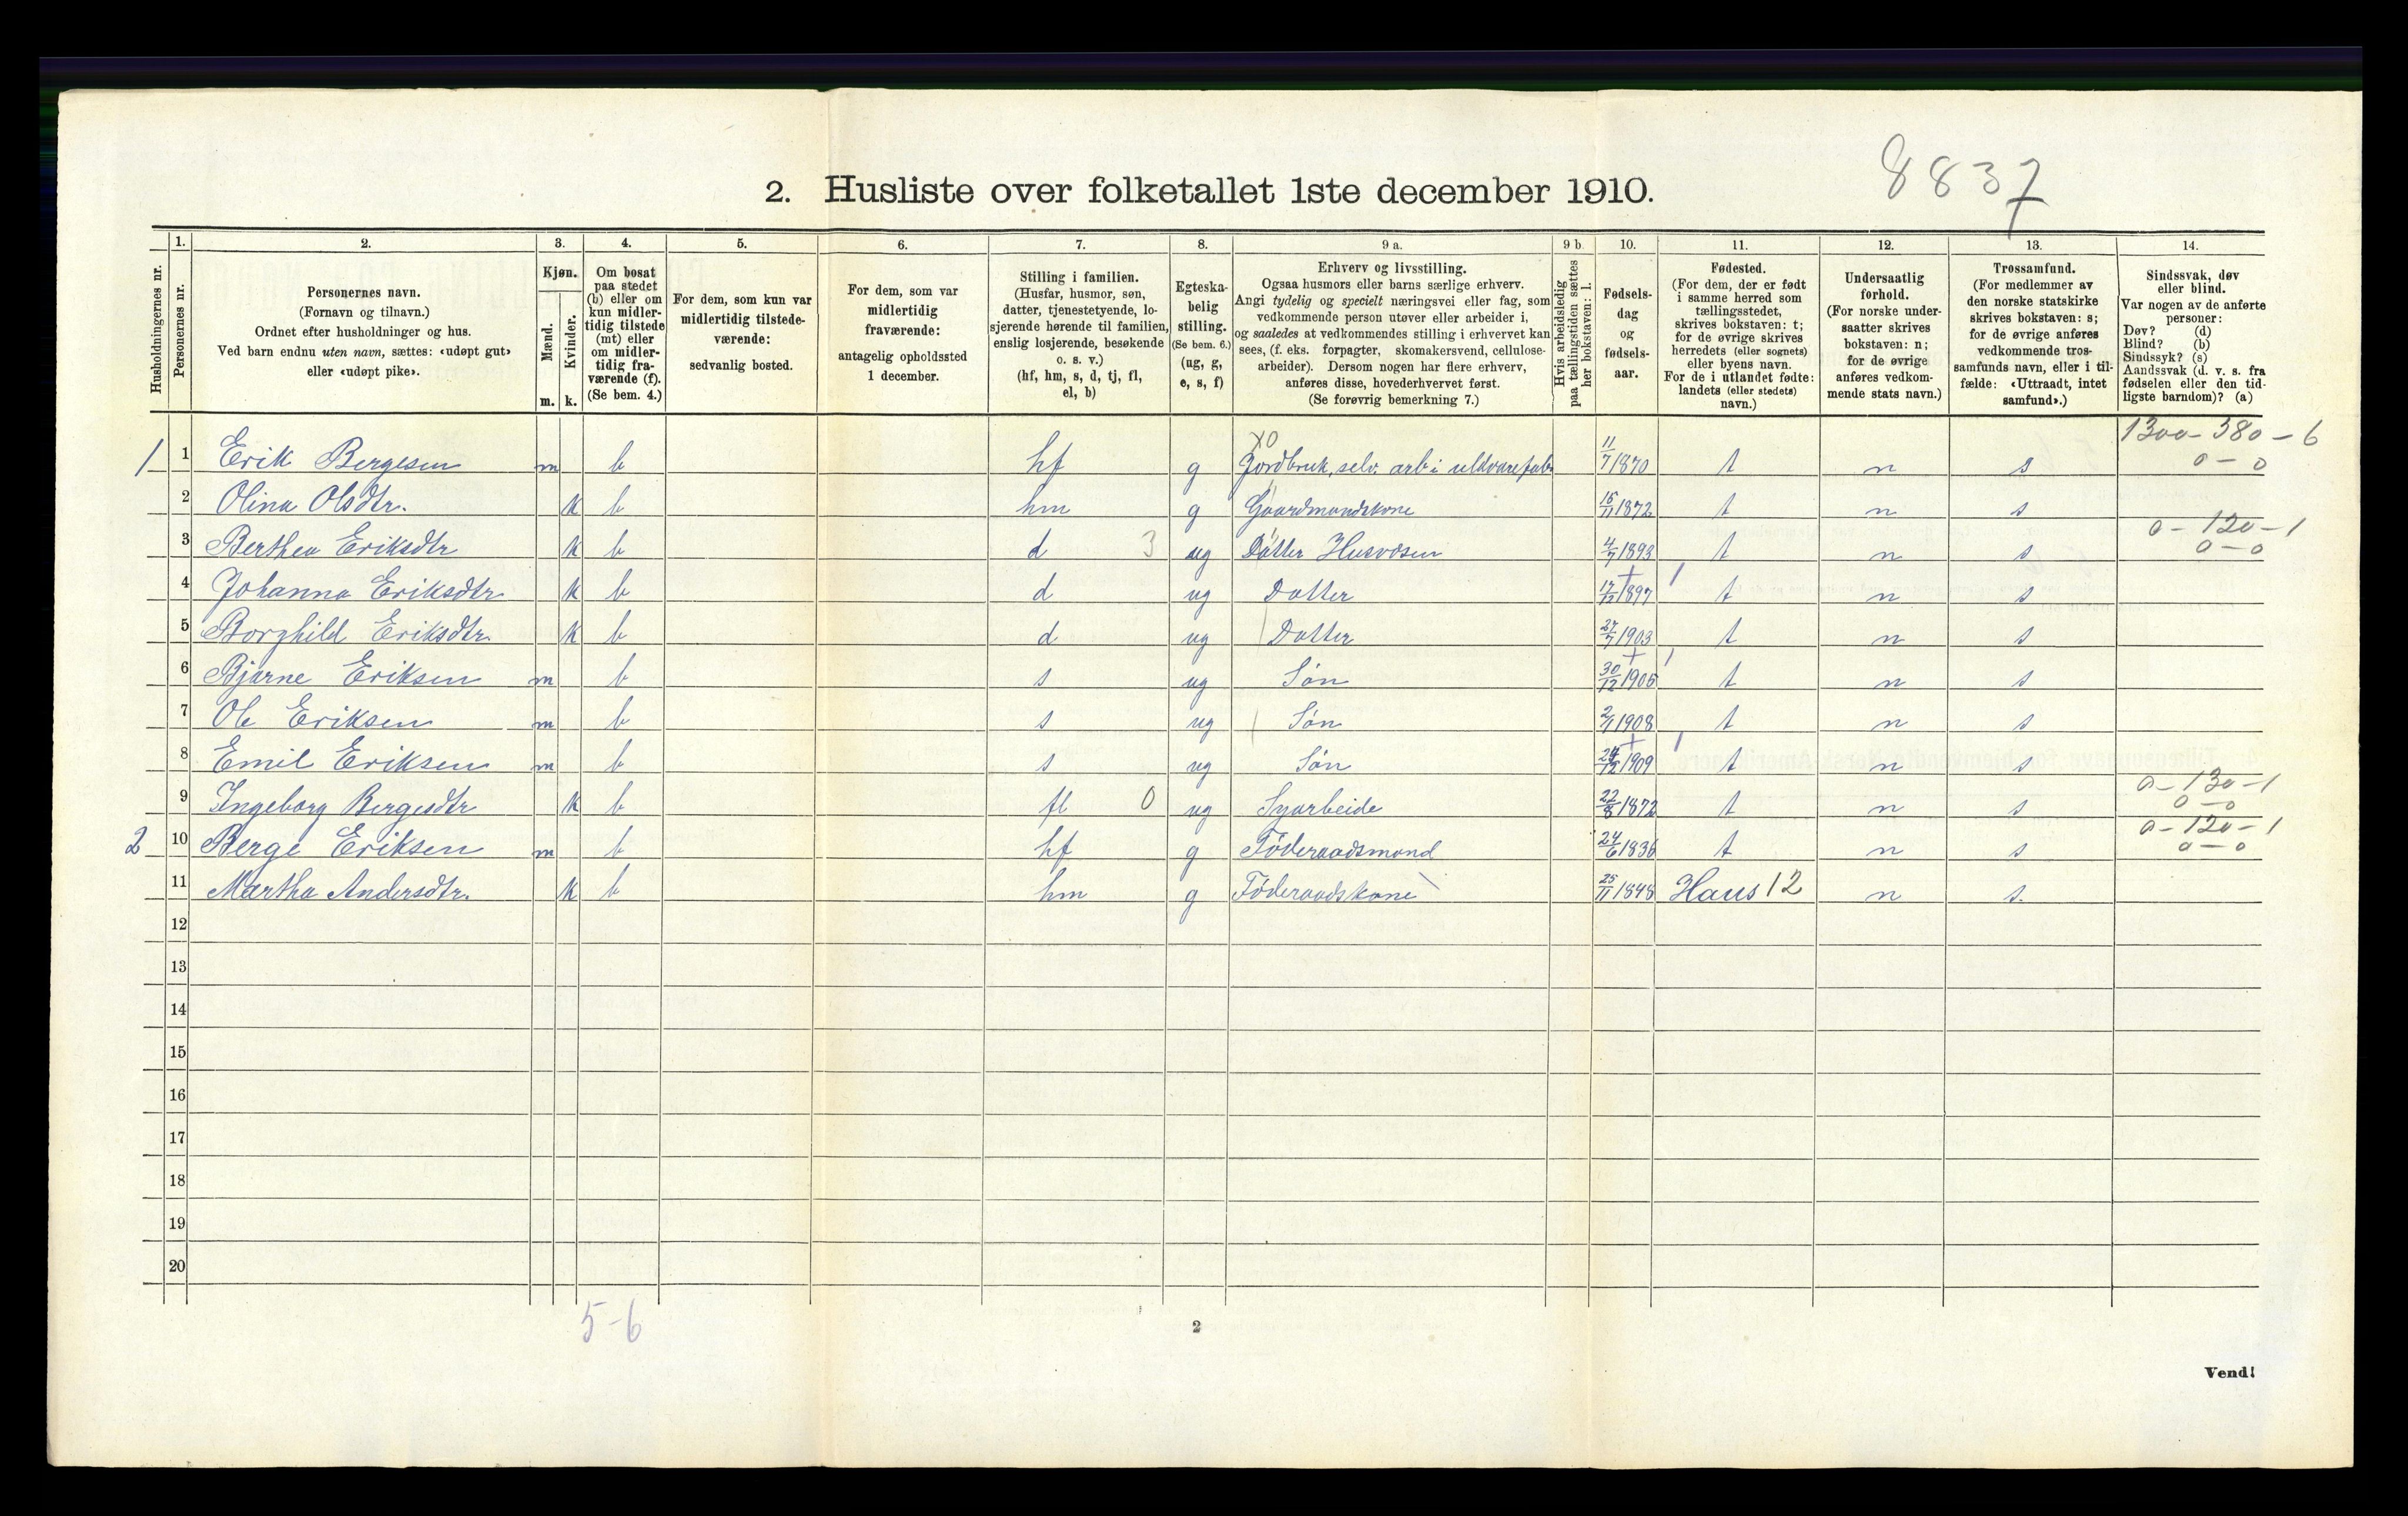 8837
2. Husliste over folketallet 1ste december 1910.
Husholdningernes nr.
1. Personernes nr.
2. Personernes navn.
(Fornavn og tilnavn.)
Ordnet efter husholdninger og hus.
Ved barn endnu uten navn, sættes: «udøpt gut»
eller «udøpt pike».
3. Kjøn.
Mænd. m.
Kvinder. k.
4. Om bosat
paa stedet
(b) eller om
kun midler-
tidig tilstede
(mt) eller
om midler-
tidig fra-
værende (f).
(Se bem. 4.)
5. For dem, som kun var
midlertidig tilstede-
værende:
sedvanlig bosted.
6. For dem, som var
midlertidig
fraværende:
antagelig opholdssted
1 december.
7. Stilling i familien.
(Husfar, husmor, søn,
datter, tjenestetyende, lo-
sjerende hørende til familien,
enslig losjerende, besøkende
o. s. v.)
(hf, hm, s, d, tj, fl,
el, b)
8. Egteska-
belig
stilling.
(Se bem. 6.)
(ug, g,
e, s, f)
9 a. Erhverv og livsstilling.
Ogsaa husmors eller barns særlige erhverv.
Angi tydelig og specielt næringsvei eller fag, som
vedkommende person utøver eller arbeider i,
og saaledes at vedkommendes stilling i erhvervet kan
sees, (f. eks. forpagter, skomakersvend, cellulose-
arbeider). Dersom nogen har flere erhverv,
anføres disse, hovederhvervet først.
(Se forøvrig bemerkning 7.)
9 b. Hvis arbeidsledig
paa tællingstiden sættes
her bokstaven: l.
10. Fødsels-
dag
og
fødsels-
aar.
11. Fødested.
(For dem, der er født
i samme herred som
tællingsstedet,
skrives bokstaven: t;
for de øvrige skrives
herredets (eller sognets)
eller byens navn.
For de i utlandet fødte:
landets (eller stedets)
navn.)
12. Undersaatlig
forhold.
(For norske under-
saatter skrives
bokstaven: n;
for de øvrige
anføres vedkom-
mende stats navn.)
13. Trossamfund.
(For medlemmer av
den norske statskirke
skrives bokstaven: s;
for de øvrige anføres
vedkommende tros-
samfunds navn, eller i til-
fælde: «Uttraadt, intet
samfund».)
14. Sindssvak, døv
eller blind.
Var nogen av de anførte
personer:
Døv? (d)
Blind? (b)
Sindssyk? (s)
Aandssvak (d. v. s. fra
fødselen eller den tid-
ligste barndom)? (a)
1300-380-6
1 1 Erik Bergesen m b hf g X0 Jordbruk, selv. arb i uldvarefabr 11/7 1870 t n s 0-0
2 Olina Olsdtr. k b hm g Gaardmandskone 15/11 1872 t n s
0-120-1
3 Berthea Eriksdtr k b d 3 ug Datter Husvæsen 4/7 1893 t n s 0-0
4 Johanna Eriksdtr k b d ug Datter 17/12 1897 t n s
5 Borghild Eriksdtr. k b d ug Datter 27/7 1903 t n s
6 Bjarne Eriksen m b s ug Søn 30/12 1905 t n s
7 Ole Eriksen m b s ug Søn 2/11 1908 t n s
8 Emil Eriksen m b s ug Søn 1909 t n s
0-130-1
9 Ingeborg Bergesdtr k b fl 0 ug Syarbeide 22/8 1872 t n s 0-0
0-120-1
2 10 Berge Eriksen m b hf g Føderaadsmand 24/6 1836 t n s 0-0
11 Martha Andersdtr. k b hm g Føderaadskone 25/11 1848 Haus 12 n s.
12
13
14
15
16
17
18
19
20
5-6
2
Vend!